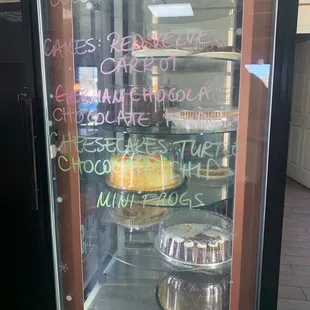 CAKES: RED VELVET
CARROT
GERMAN CHOCOLATE
CHOCOLATE
CHEESECAKES: TURT
CHOCO CHIP
MINI FROGS